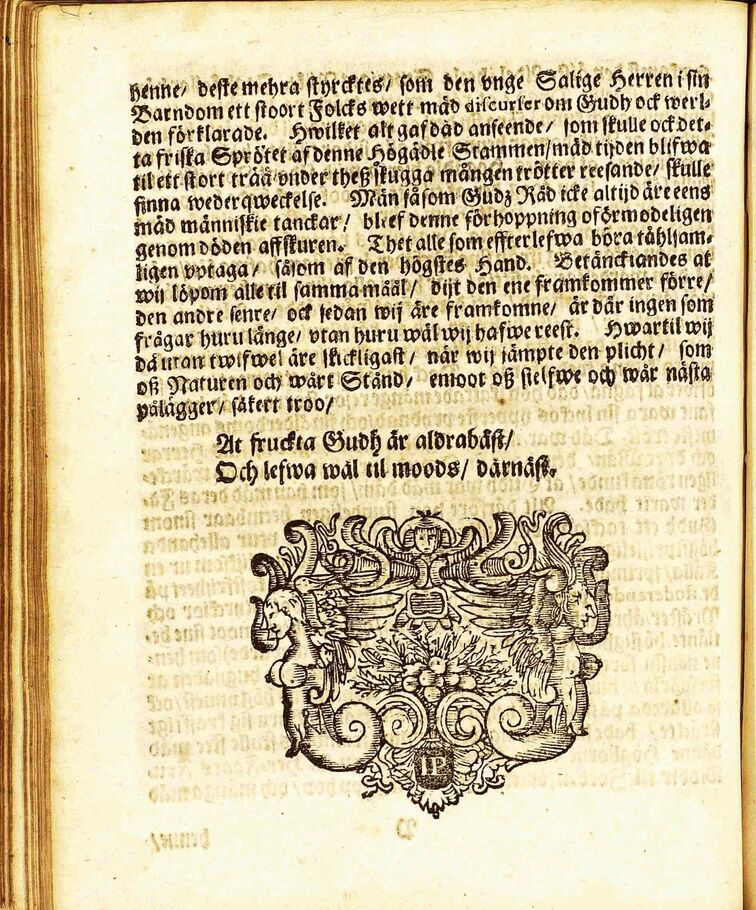 henne/ deste mehra styrcktes/ som den vnge Salige Herren i sin
Barndom ett stoort Folcks wett mäd discurser om Gudh ock werl-
den förklarade. Hwilket alt gaf däd anseende/ som skulle ock det-
ta friska Sprötet af denne Högädle Stammen/ mäd tijden blifwa
til ett stort trää/ vnder theß skugga mången trötter reesande/ skulle
finna wederqweckelse. Män såsom Gudz Råd icke altijd äre eens
mäd människie tanckar/ blief denne förhoppning oförmodeligen
genom döden affskuren. Thet alle som effterlefwa böra tåhljam-
ligen vptaga/ såsom af den högstes Hand. Betänckiandes at
wij löpom alle til samma måål/ dijt den ene framkommer förre/
den andre senre/ ock sedan wij äre framkomne/ är där ingen som
frågar huru länge/ vtan huru wäl wij hafwe reest. Hwartil wij
då utan twifwel äre skickligast/ när wij jämpte den plicht/ som
oß Naturen och wårt Stånd/ emoot oß sielfwe och wår nästa
pålägger/ säkert troo/
At fruckta Gudh är aldrabäst/
Och lefwa wäl til moods/ därnäst.
IP